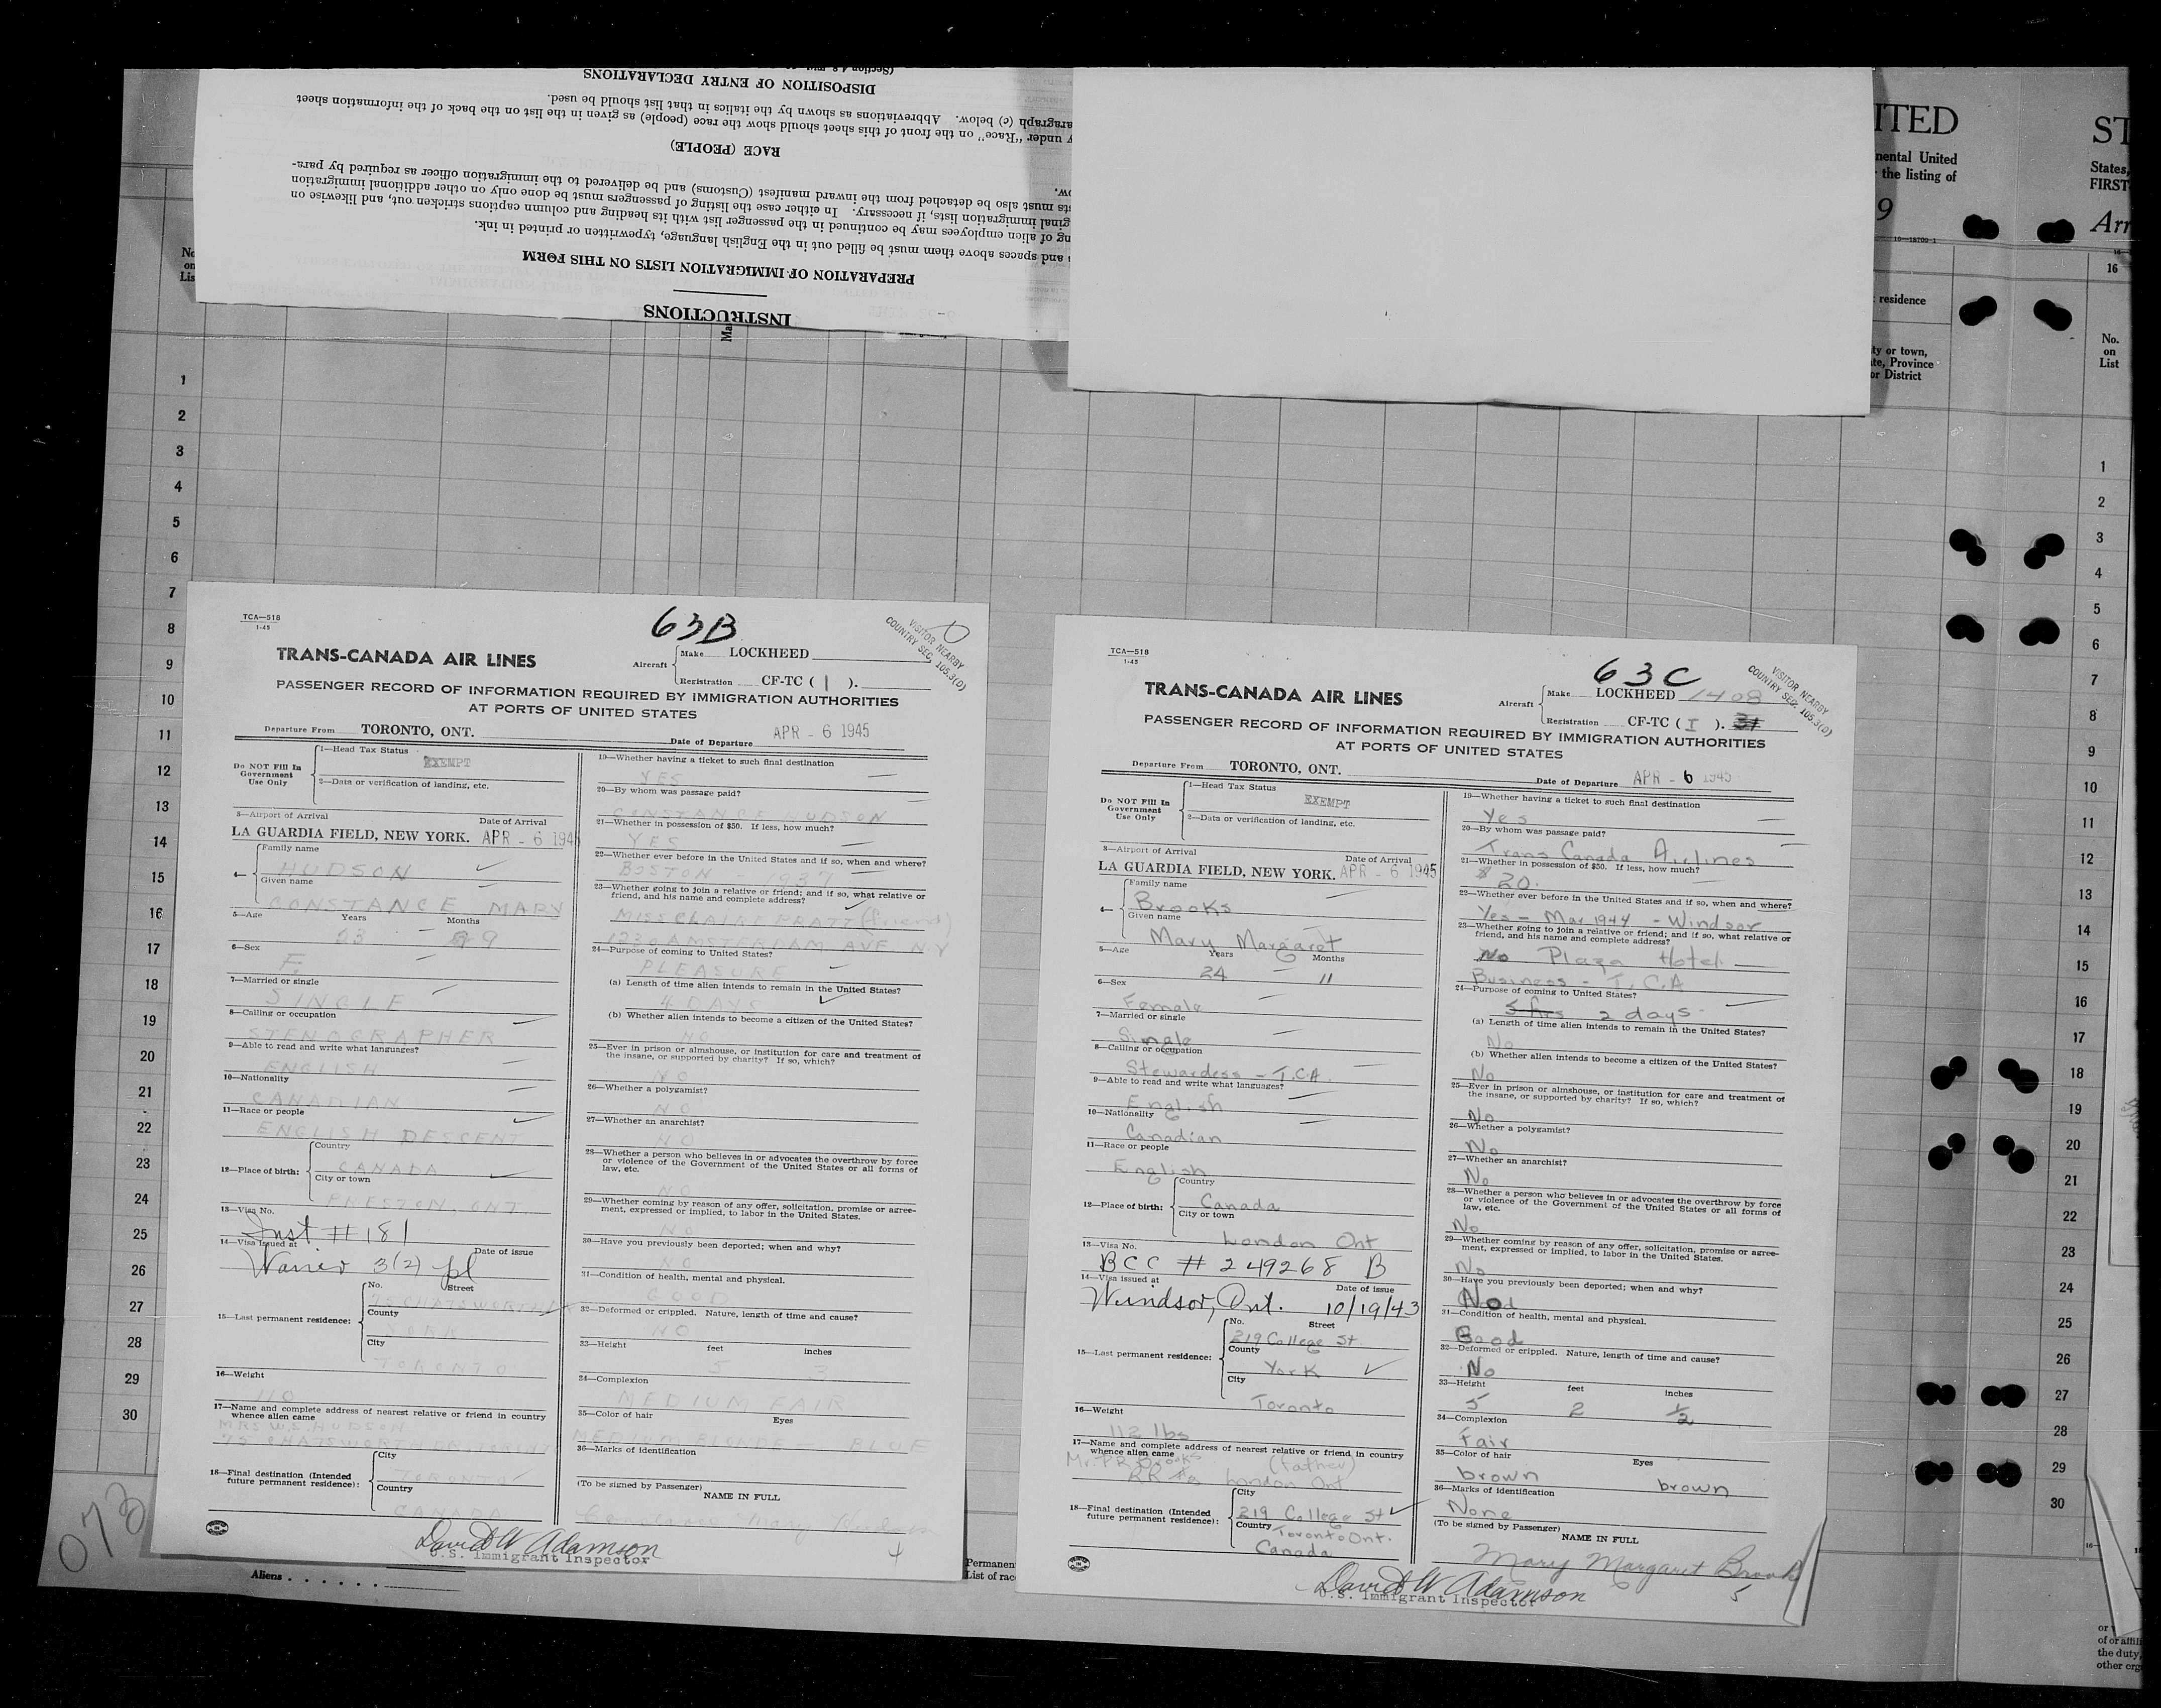 (Section 4.8
DISPOSITION OF ENTRY DECLARATIONS
paragraph (c) below. Abbreviations as shown by the italics in that list should be used.
under "Race" on the front of this sheet should show the race (people) as given in the list on the back of the information sheet
RACE (PEOPLE)
must also be detached from the inward manifest (Customs) and be delivered to the immigration officer as required by para-
immigration lists, if necessary. In either case the listing of passengers must be done only on other additional immigration
of alien employees may be continued in the passenger list with its heading and column captions stricken out, and likewise on
and spaces above them must be filled out in the English language, typewritten or printed in ink.
PREPARATION OF IMMIGRATION LISTS ON THIS FORM
INSTRUCTIONS
ITED
nental United
the listing of
9
16—18709-1
residence
ty or town,
te, Province
or District
ST
States,
FIRST
Arr
16
No.
on
List
1
2
3
4
5
6
7
8
9
10
11
12
13
14
15
16
17
18
19
20
21
22
23
24
25
26
27
28
29
30
No
on
Lis
1
2
3
4
5
6
7
8
9
10
11
12
13
14
15
16
17
18
19
20
21
22
23
24
25
26
27
28
29
30
073
Aliens . . . . . .
Permanen
List of rac
TCA—518
1-45
63B
VISITOR NEARBY
COUNTRY SEC. 105.3(D)
TRANS-CANADA AIR LINES
Aircraft Make LOCKHEED
Registration CF-TC ( I ).
PASSENGER RECORD OF INFORMATION REQUIRED BY IMMIGRATION AUTHORITIES
AT PORTS OF UNITED STATES
Departure From TORONTO, ONT. Date of Departure APR - 6 1945
Do NOT Fill In Government Use Only
1—Head Tax Status EXEMPT
2—Data or verification of landing, etc.
3—Airport of Arrival Date of Arrival
LA GUARDIA FIELD, NEW YORK. APR - 6 1945
4— Family name
HUDSON
Given name
CONSTANCE MARY
5—Age Years Months
9
6—Sex
F.
7—Married or single
SINGLE
8—Calling or occupation
STENOGRAPHER
9—Able to read and write what languages?
ENGLISH
10—Nationality
CANADIAN
11—Race or people
ENGLISH DESCENT
12—Place of birth: Country
CANADA
City or town
PRESTON, ONT
13—Visa No.
Inst # 181
14—Visa issued at Date of issue
Waiver 3(2) pl
15—Last permanent residence: No. Street
75 CHATSWORTH
County
YORK
City
TORONTO
16—Weight
110
17—Name and complete address of nearest relative or friend in country
whence alien came
MRS W.S. HUDSON
75 CHATSWORTH
18—Final destination (Intended
future permanent residence): City
TORONTO
Country
CANADA
19—Whether having a ticket to such final destination
YES
20—By whom was passage paid?
CONSTANCE HUDSON
21—Whether in possession of $50. If less, how much?
YES
22—Whether ever before in the United States and if so, when and where?
BOSTON - 1937
23—Whether going to join a relative or friend; and if so, what relative or
friend, and his name and complete address?
MISS CLAIRE PRATT (friend)
1230 AMSTERDAM AVE NY
24—Purpose of coming to United States?
PLEASURE
(a) Length of time alien intends to remain in the United States?
4 DAYS
(b) Whether alien intends to become a citizen of the United States?
NO
25—Ever in prison or almshouse, or institution for care and treatment of
the insane, or supported by charity? If so, which?
NO
26—Whether a polygamist?
NO
27—Whether an anarchist?
NO
28—Whether a person who believes in or advocates the overthrow by force
or violence of the Government of the United States or all forms of
law, etc.
NO
29—Whether coming by reason of any offer, solicitation, promise or agree-
ment, expressed or implied, to labor in the United States.
NO
30—Have you previously been deported; when and why?
NO
31—Condition of health, mental and physical.
GOOD
32—Deformed or crippled. Nature, length of time and cause?
NO
33—Height feet inches
5 3
34—Complexion
MEDIUM FAIR
35—Color of hair Eyes
MEDIUM BLONDE BLUE
36—Marks of identification
(To be signed by Passenger)
NAME IN FULL
Constance Mary Hudson
David W Adamson
U.S. Immigrant Inspector
4
TCA—518
1-45
63C
VISITOR NEARBY
COUNTRY SEC. 105.3(D)
TRANS-CANADA AIR LINES
Aircraft Make LOCKHEED 1408
Registration CF-TC ( I ). 31
PASSENGER RECORD OF INFORMATION REQUIRED BY IMMIGRATION AUTHORITIES
AT PORTS OF UNITED STATES
Departure From TORONTO, ONT. Date of Departure APR - 6 1945
Do NOT Fill In Government Use Only
1—Head Tax Status EXEMPT
2—Data or verification of landing, etc.
3—Airport of Arrival Date of Arrival
LA GUARDIA FIELD, NEW YORK. APR - 6 1945
4— Family name
Brooks
Given name
Mary Margaret
5—Age Years Months
24 11
6—Sex
Female
7—Married or single
Single
8—Calling or occupation
Stewardess - T.C.A.
9—Able to read and write what languages?
English
10—Nationality
Canadian
11—Race or people
English
12—Place of birth: Country
Canada
City or town
London Ont
13—Visa No.
BCC # 249268 B
14—Visa issued at Date of issue
Windsor, Ont. 10/19/43
15—Last permanent residence: No. Street
219 College St
County
York
City
Toronto
16—Weight
112 lbs
17—Name and complete address of nearest relative or friend in country
whence alien came
Mr. P R Brooks (father)
RR London Ont.
18—Final destination (Intended
future permanent residence): City
219 College St
Country
Toronto Ont.
Canada
19—Whether having a ticket to such final destination
Yes
20—By whom was passage paid?
Trans Canada Airlines
21—Whether in possession of $50. If less, how much?
$ 20.
22—Whether ever before in the United States and if so, when and where?
Yes - Mar 1944 - Windsor
23—Whether going to join a relative or friend; and if so, what relative or
friend, and his name and complete address?
No Plaza Hotel
Business - T.C.A
24—Purpose of coming to United States?
5 hrs 2 days
(a) Length of time alien intends to remain in the United States?
No
(b) Whether alien intends to become a citizen of the United States?
No
25—Ever in prison or almshouse, or institution for care and treatment of
the insane, or supported by charity? If so, which?
No
26—Whether a polygamist?
No
27—Whether an anarchist?
No
28—Whether a person who believes in or advocates the overthrow by force
or violence of the Government of the United States or all forms of
law, etc.
No
29—Whether coming by reason of any offer, solicitation, promise or agree-
ment, expressed or implied, to labor in the United States.
No
30—Have you previously been deported; when and why?
No
31—Condition of health, mental and physical.
Good
32—Deformed or crippled. Nature, length of time and cause?
No
33—Height feet inches
5 2 1/2
34—Complexion
Fair
35—Color of hair Eyes
brown brown
36—Marks of identification
None
(To be signed by Passenger)
NAME IN FULL
Mary Margaret Brooks
David W Adamson
U.S. Immigrant Inspector
5
or
of or affili
the duty,
other org